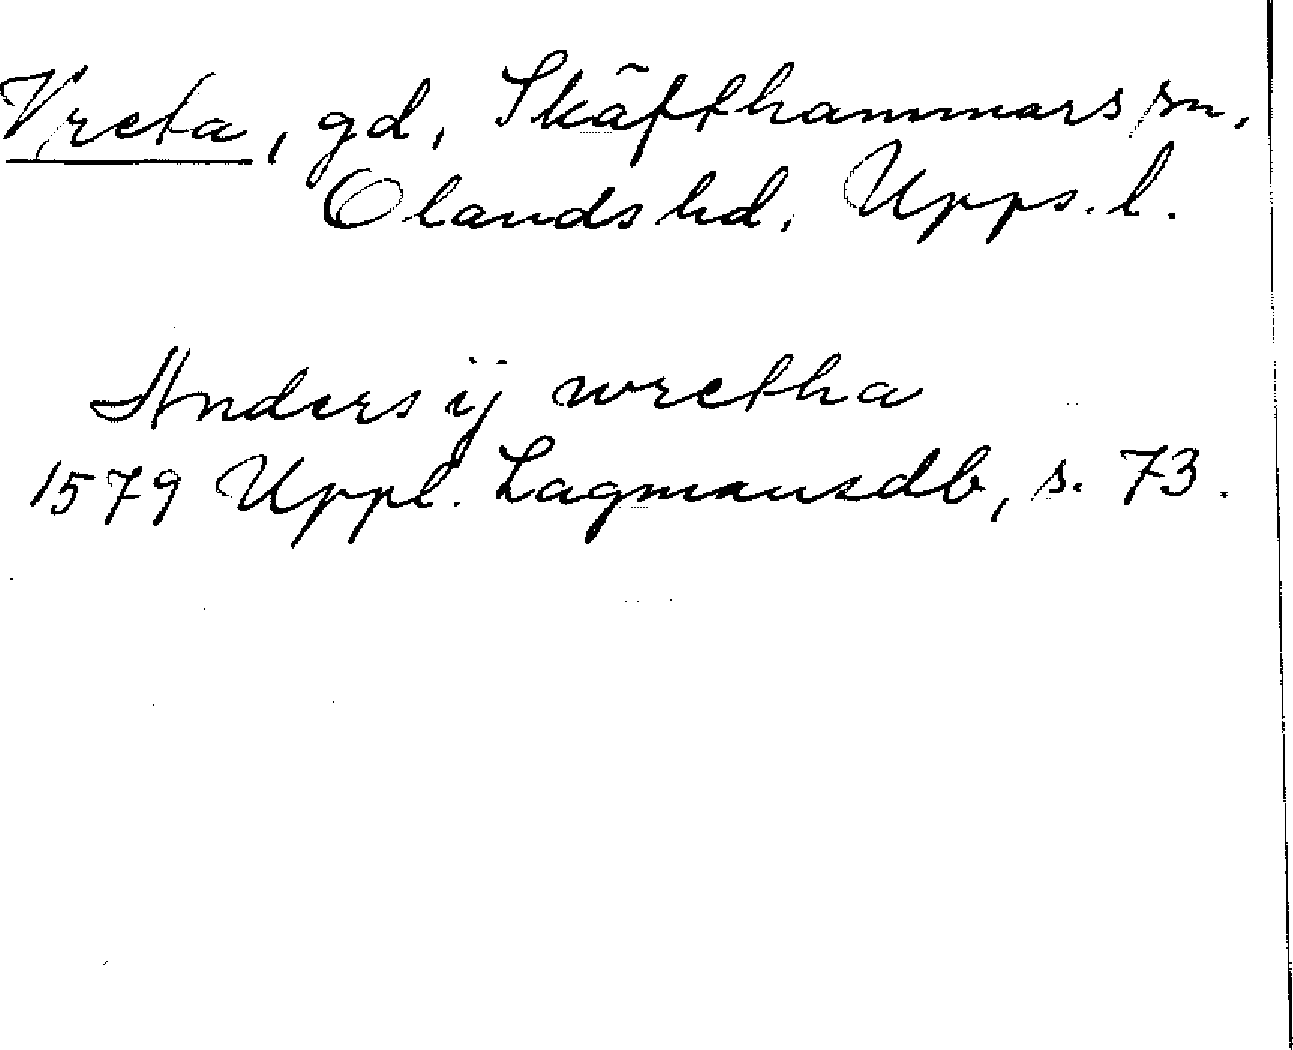 Vreta, gd, Skäfthammars sn,
Olands hd, Upps. l.
Anders ij wretha
1579 Uppl. Lagmansdb, s. 73.